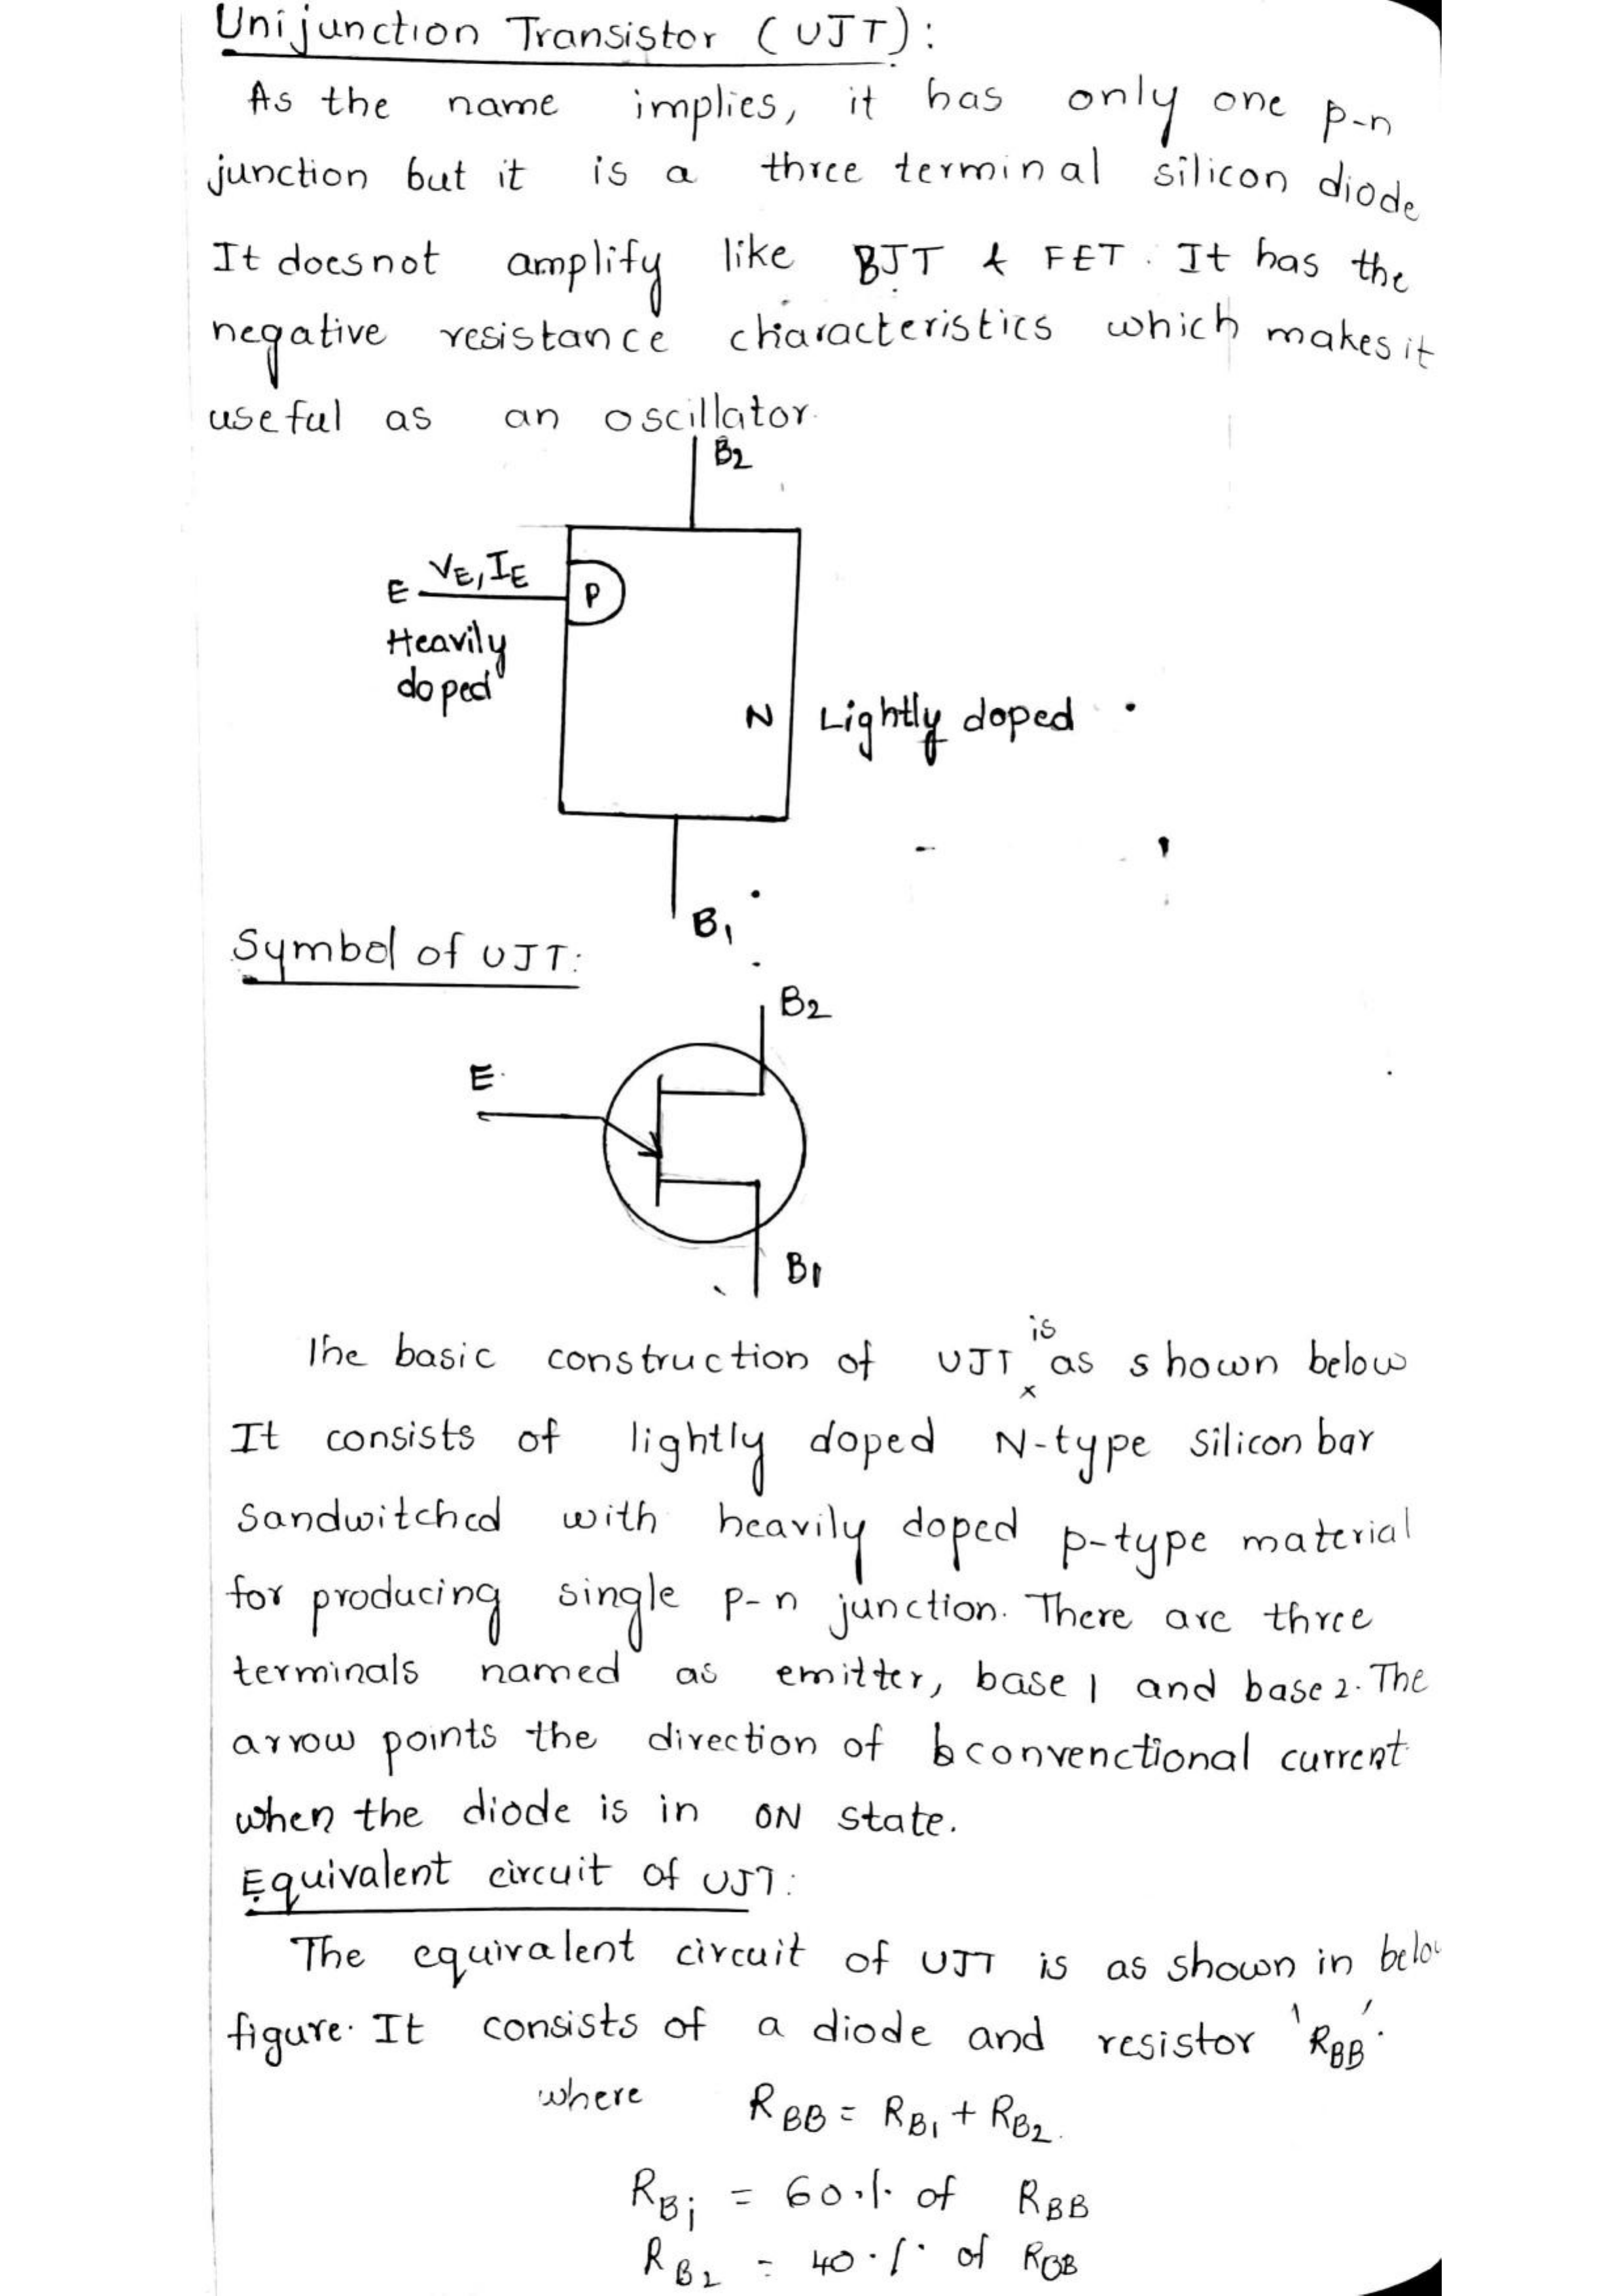 Unijunction Transistor (UJT):
As the name implies, it has only one p-n
junction but it is a three terminal silicon diode
It doesnot amplify like BJT & FET. It has the
negative resistance characteristics which makes it
useful as an oscillator.
B2
VE, IE
E
P
Heavily
doped
N
Lightly doped
B1
Symbol of UJT:
B2
E
B1
is
The basic construction of UJT as shown below
It consists of lightly doped N-type silicon bar
Sandwitched with heavily doped p-type material
for producing single p-n junction. There are three
terminals named as emitter, base 1 and base 2. The
arrow points the direction of convenctional current
when the diode is in ON state.
Equivalent circuit of UJT:
The equivalent circuit of UJT is as shown in belo
figure. It consists of a diode and resistor 'RBB'.
where RBB = RB1 + RB2.
RB1 = 60% of RBB
RB2 = 40% of RBB